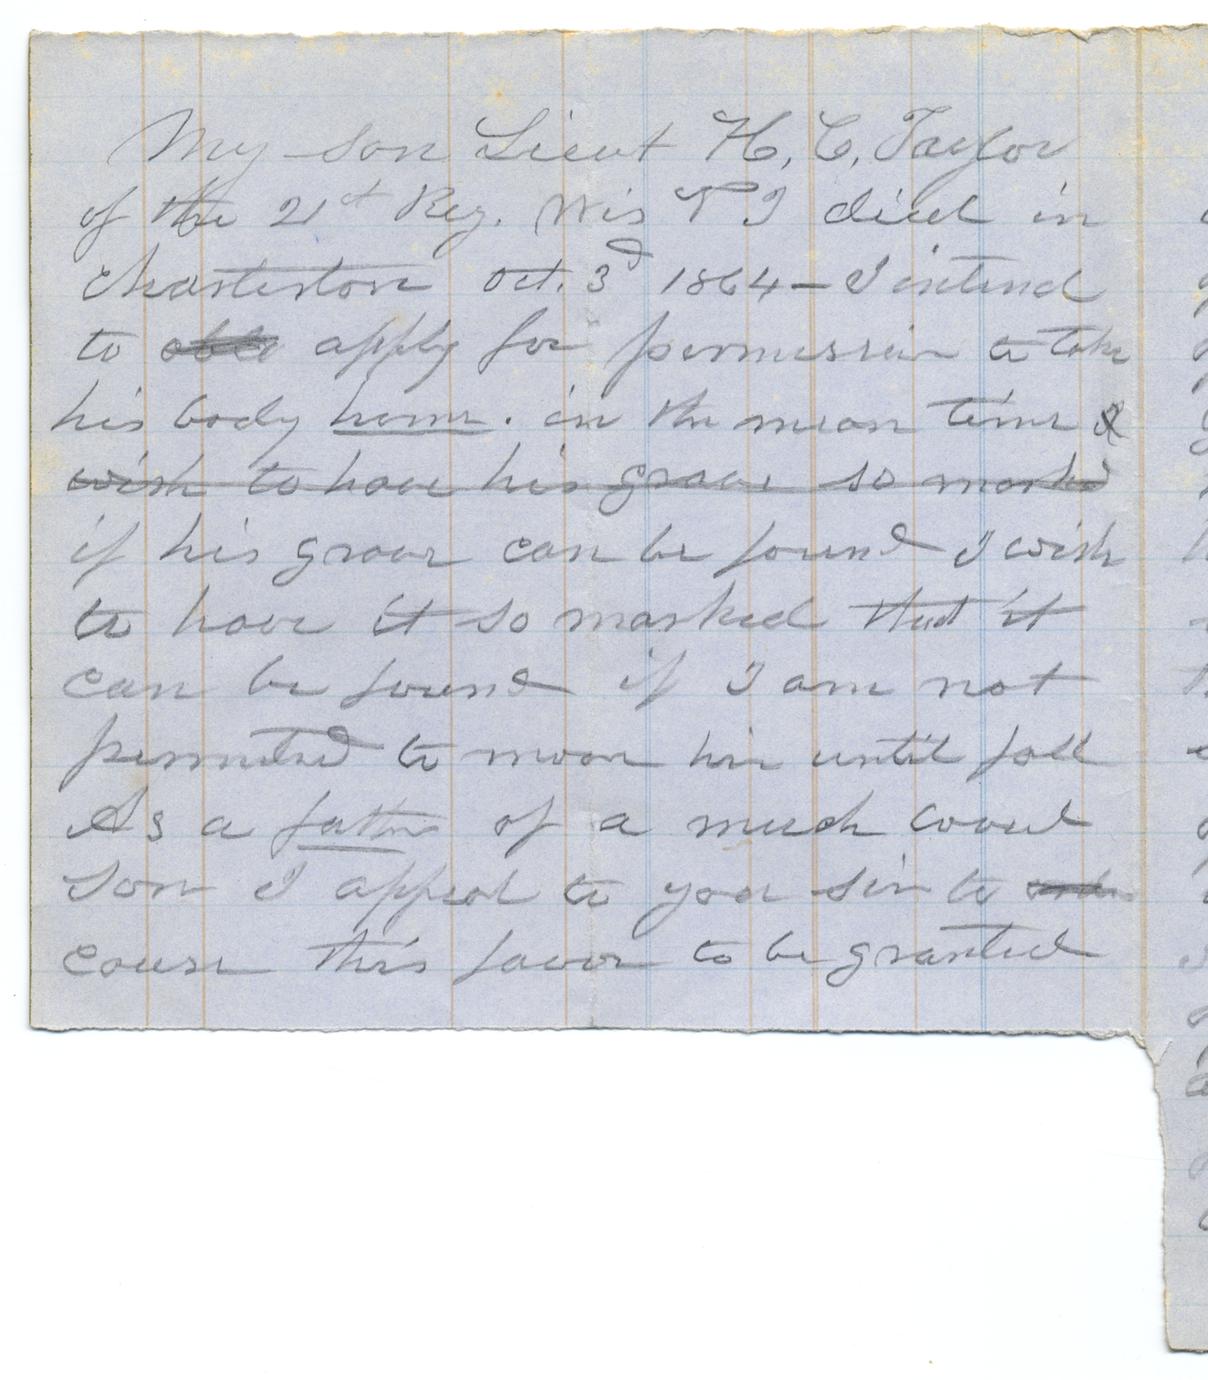 My son Lieut H. C. Taylor
of the 21st Reg. Wis V I died in
Charleston Oct. 3d 1864 – I intend
to apply for permission to take
his body home. in the mean time I
wish to have his grave so marked
if his grave can be found I wish
to have it so marked that it
can be found if I am not
permitted to move him until fall
As a father of a much loved
Son I appeal to you sir to
cause this favor to be granted